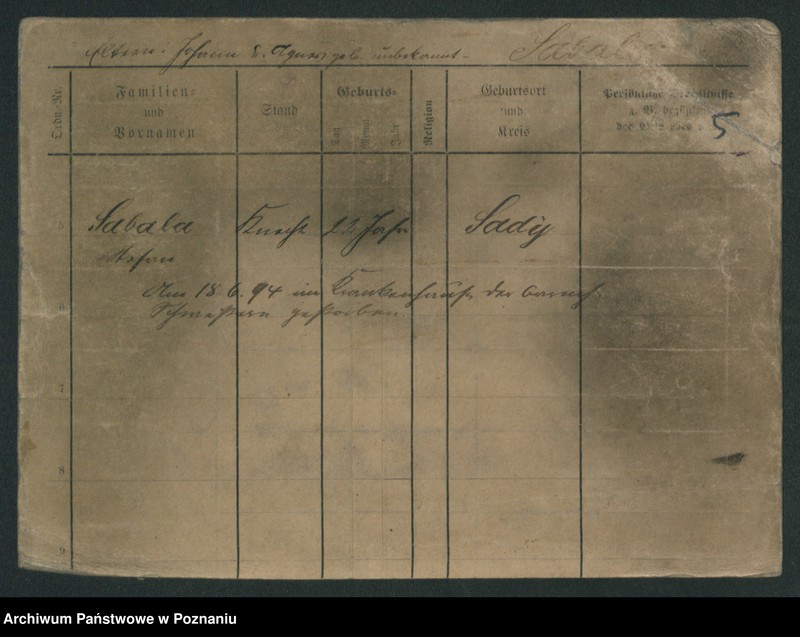 Eltern: Johann & Agnes geb. unbekannt - Sabala
5
Ordn.-Nr.
Familien-
und
Vornamen
Stand
Geburts-
Tag
Monat
Jahr
Religion
Geburtsort
und
Kreis
Persönliche Verhältnisse
z. B. bezüglich
5
Sabala
Knecht
22 Jahr
Sady
Stefan
Am 18.6.94 im Krankenhause der barmh.
Schwestern gestorben.
6
7
8
9
Archiwum Państwowe w Poznaniu